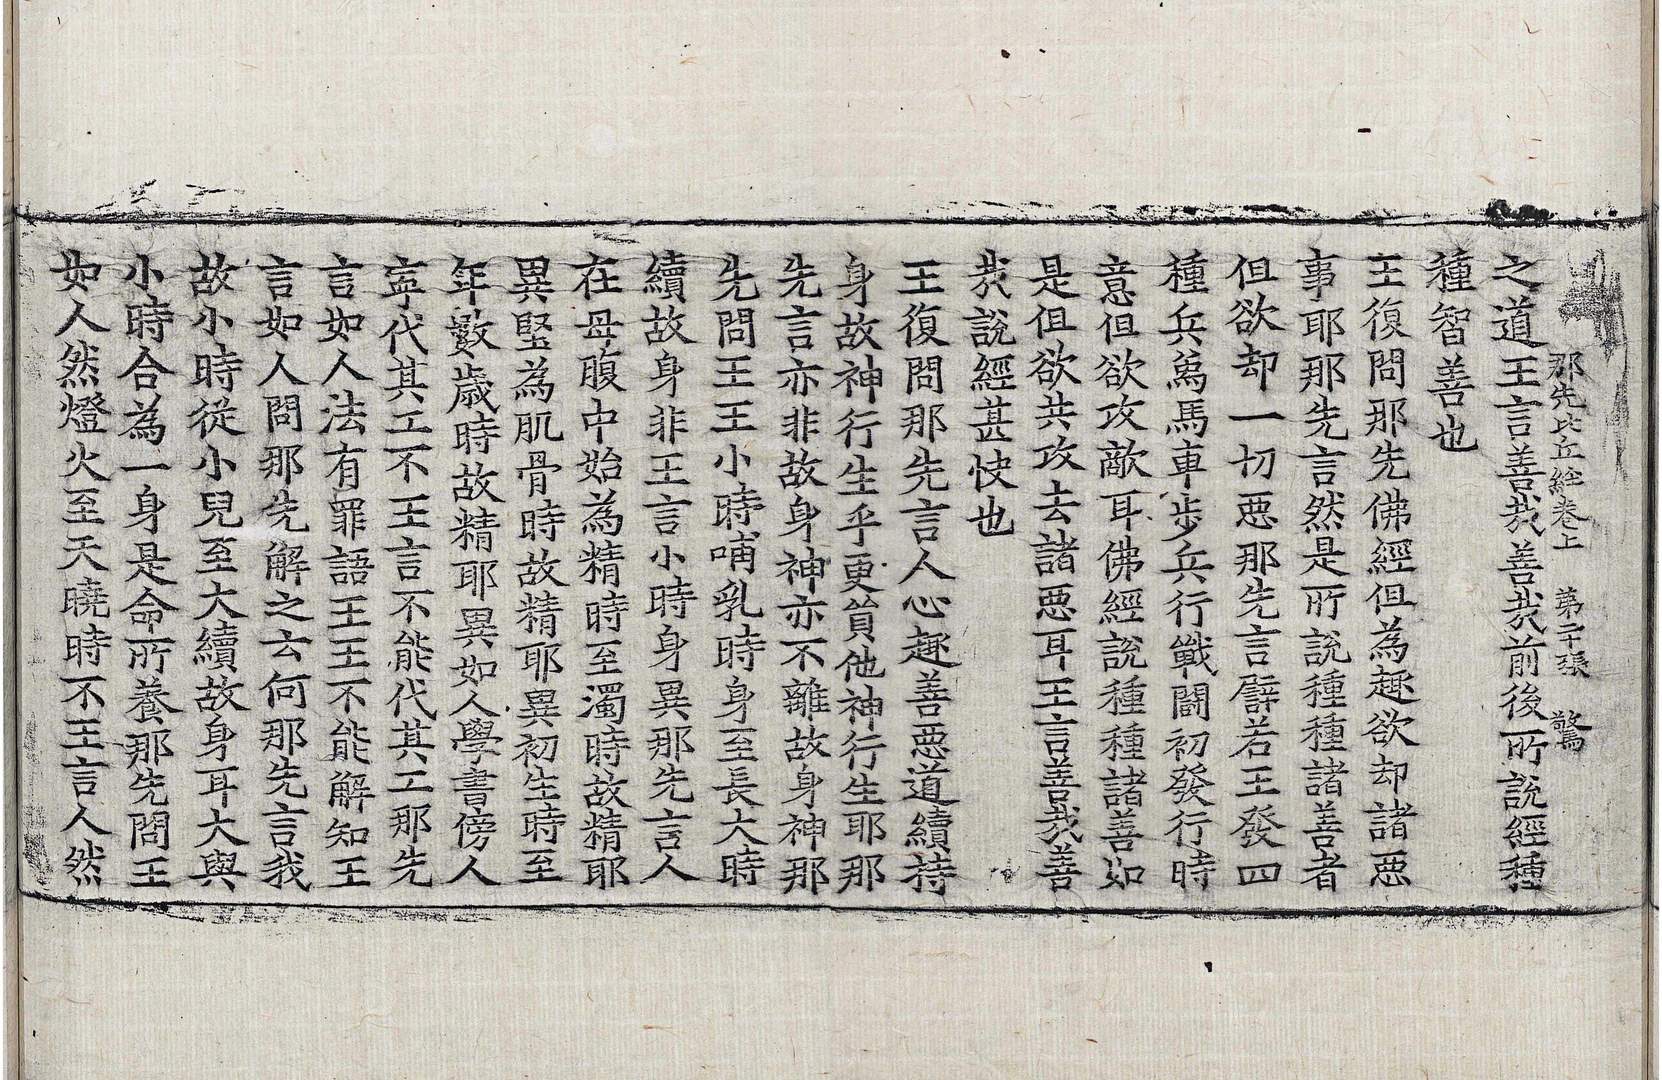 那先比丘経卷上　第二十張　驚
之道王言善㢤善㢤前後所說經種
種智善也
王復問那先佛經但為趣欲却諸悪
事耶那先言然是所說種種諸善者
但欲却一切悪那先言譬若王發四
種兵爲馬車步兵行戰鬪初發行時
意但欲攻敵耳佛經說種種諸善如
是但欲共攻去諸悪耳王言善㢤善
㢤說經甚快也
王復問那先言人心趣善悪道續持
身故神行生乎更貿他神行生耶那
先言亦非故身神亦不離故身神那
先問王王小時哺乳時身至長大時
續故身非王言小時身異那先言人
在母腹中始為精時至濁時故精耶
異堅為肌骨時故精耶異初生時至
年數歲時故精耶異如人學書傍人
寧代其工不王言不能代其工那先
言如人法有罪語王王不能解知王
言如人問那先解之云何那先言我
故小時從小兒至大續故身耳大與
小時合為一身是命所養那先問王
如人然燈火至天曉時不王言人然